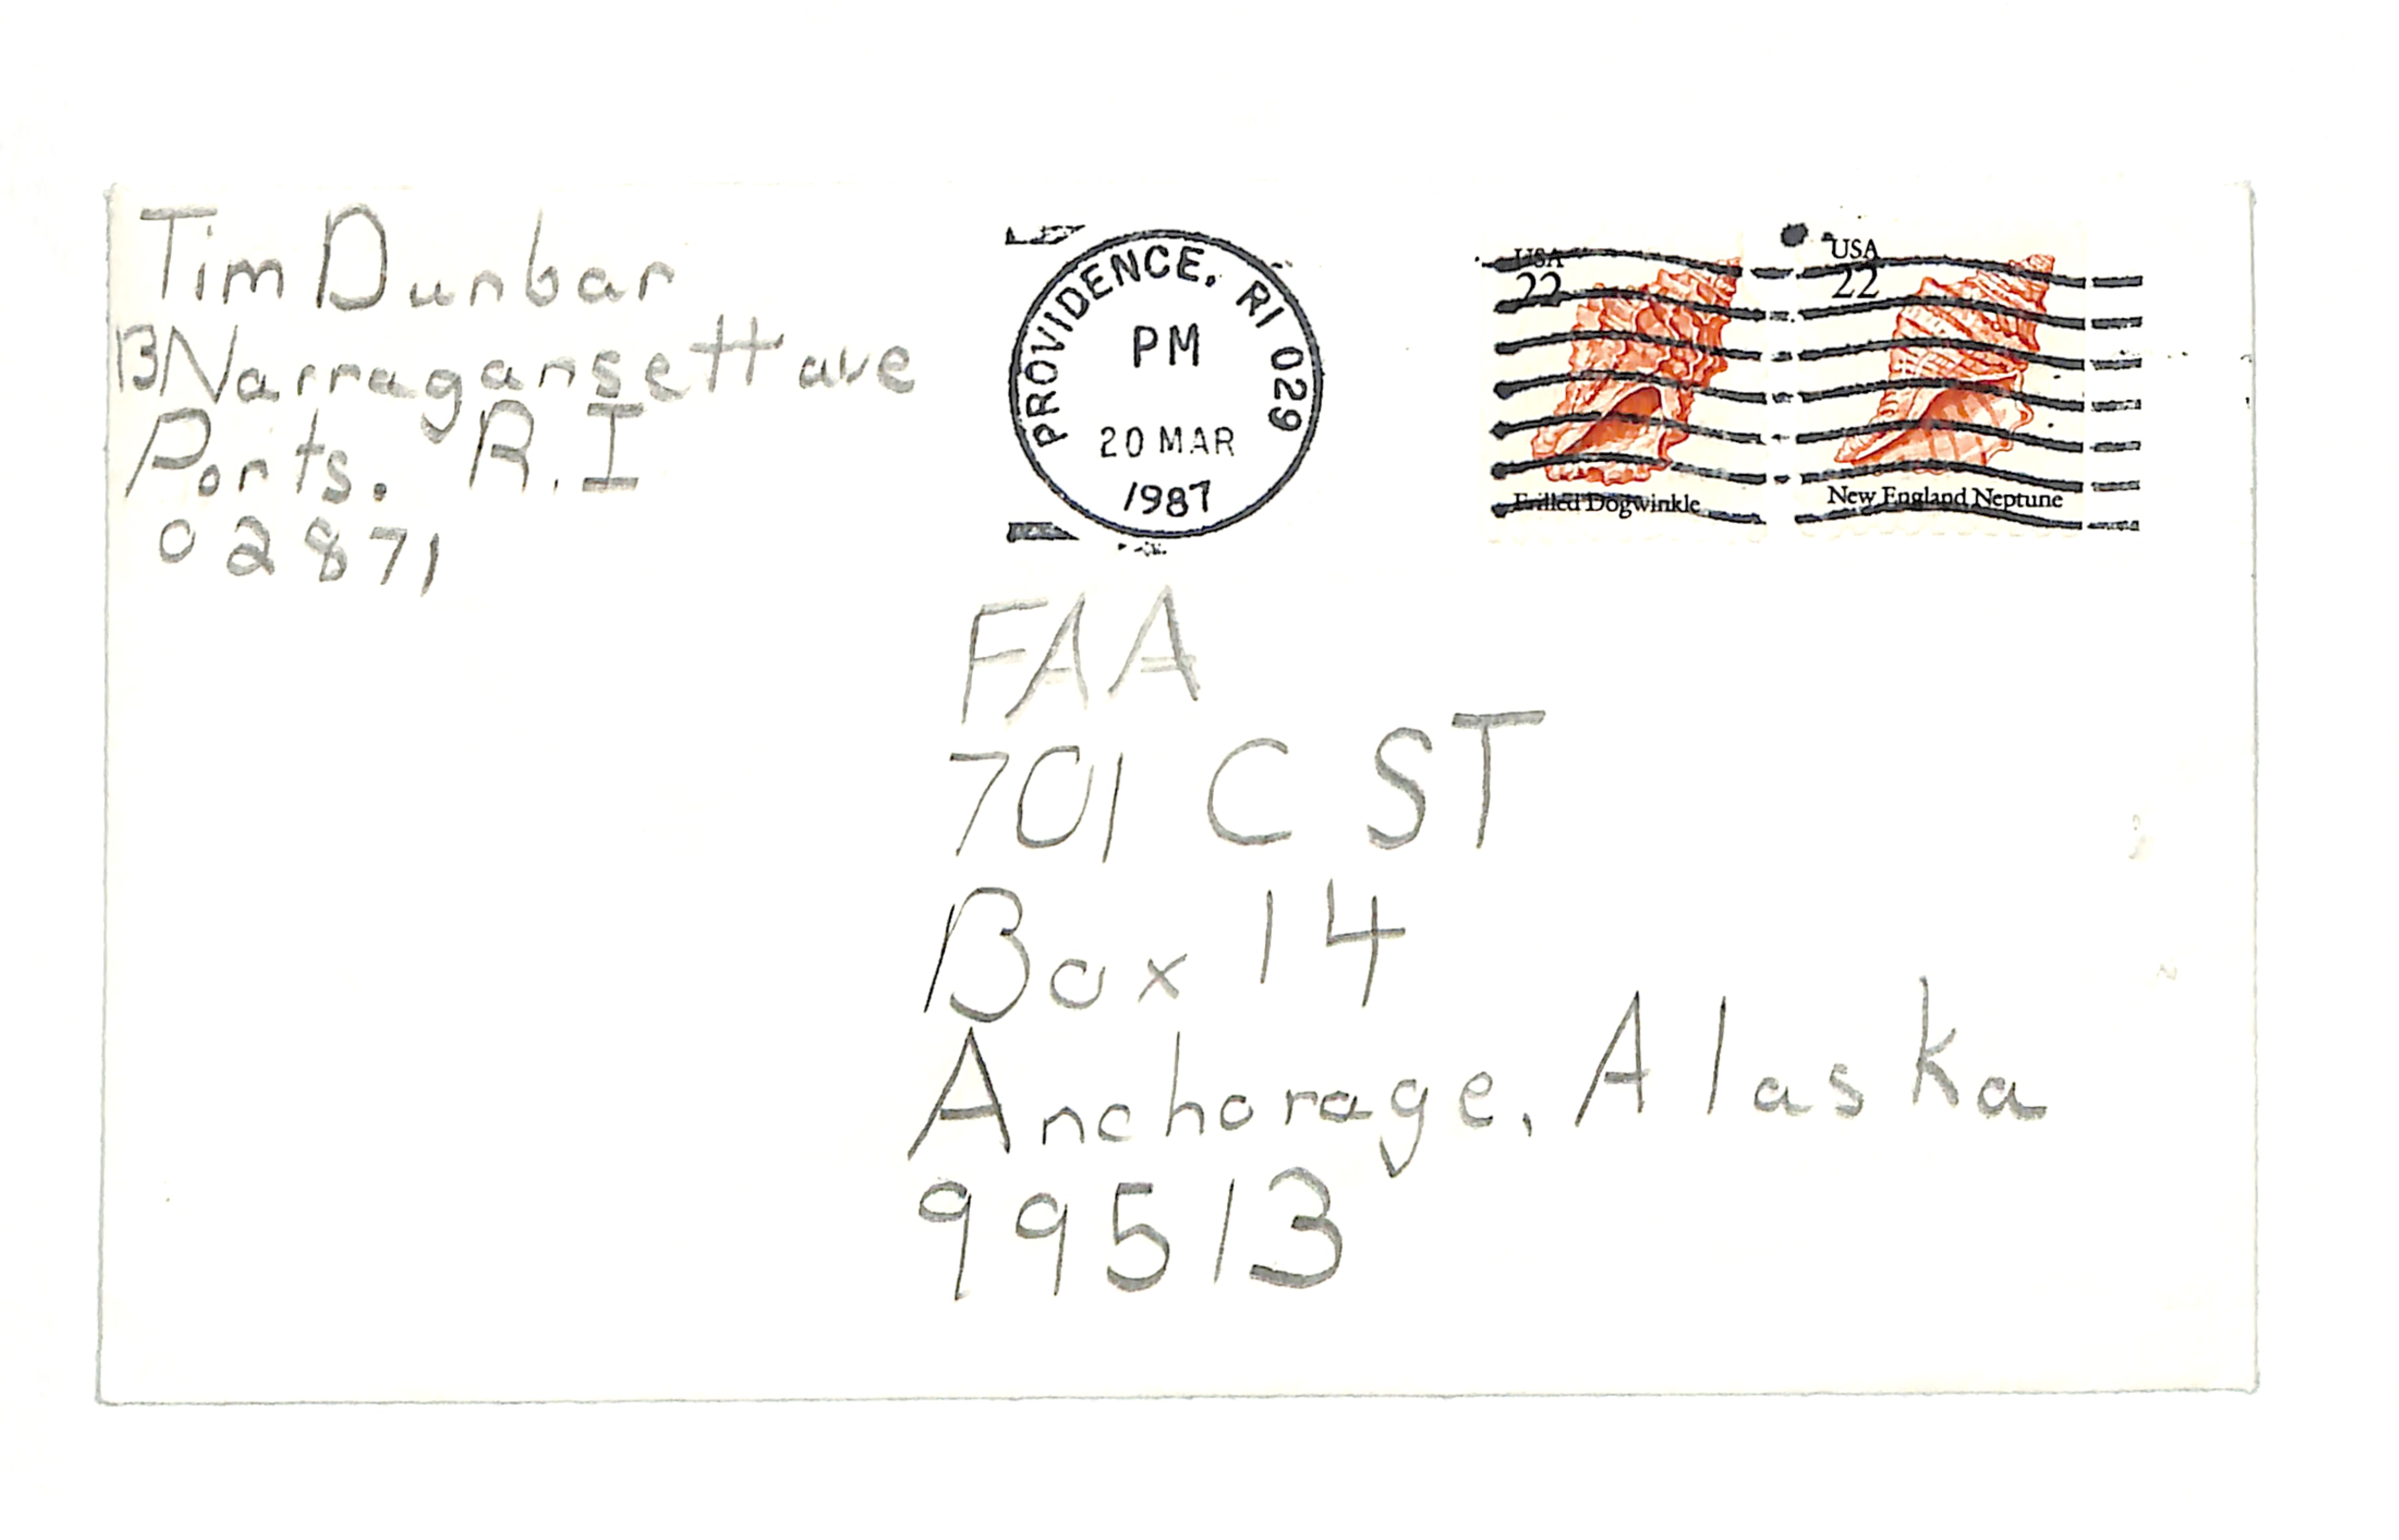 Tim Dunbar
13 Narragansett ave
Ports. R.I
02871
PROVIDENCE, RI 029
PM
20 MAR
1987
USA
22
Frilled Dogwinkle
USA
22
New England Neptune
FAA
701 C ST
Box 14
Anchorage, Alaska
99513